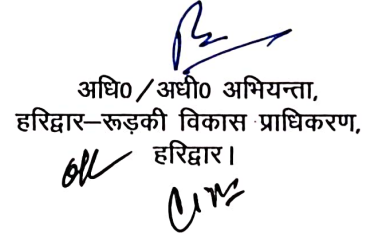 अधि0 / अधी0 अभियन्ता,
हरिद्वार–रूड़की विकास प्राधिकरण,
हरिद्वार।